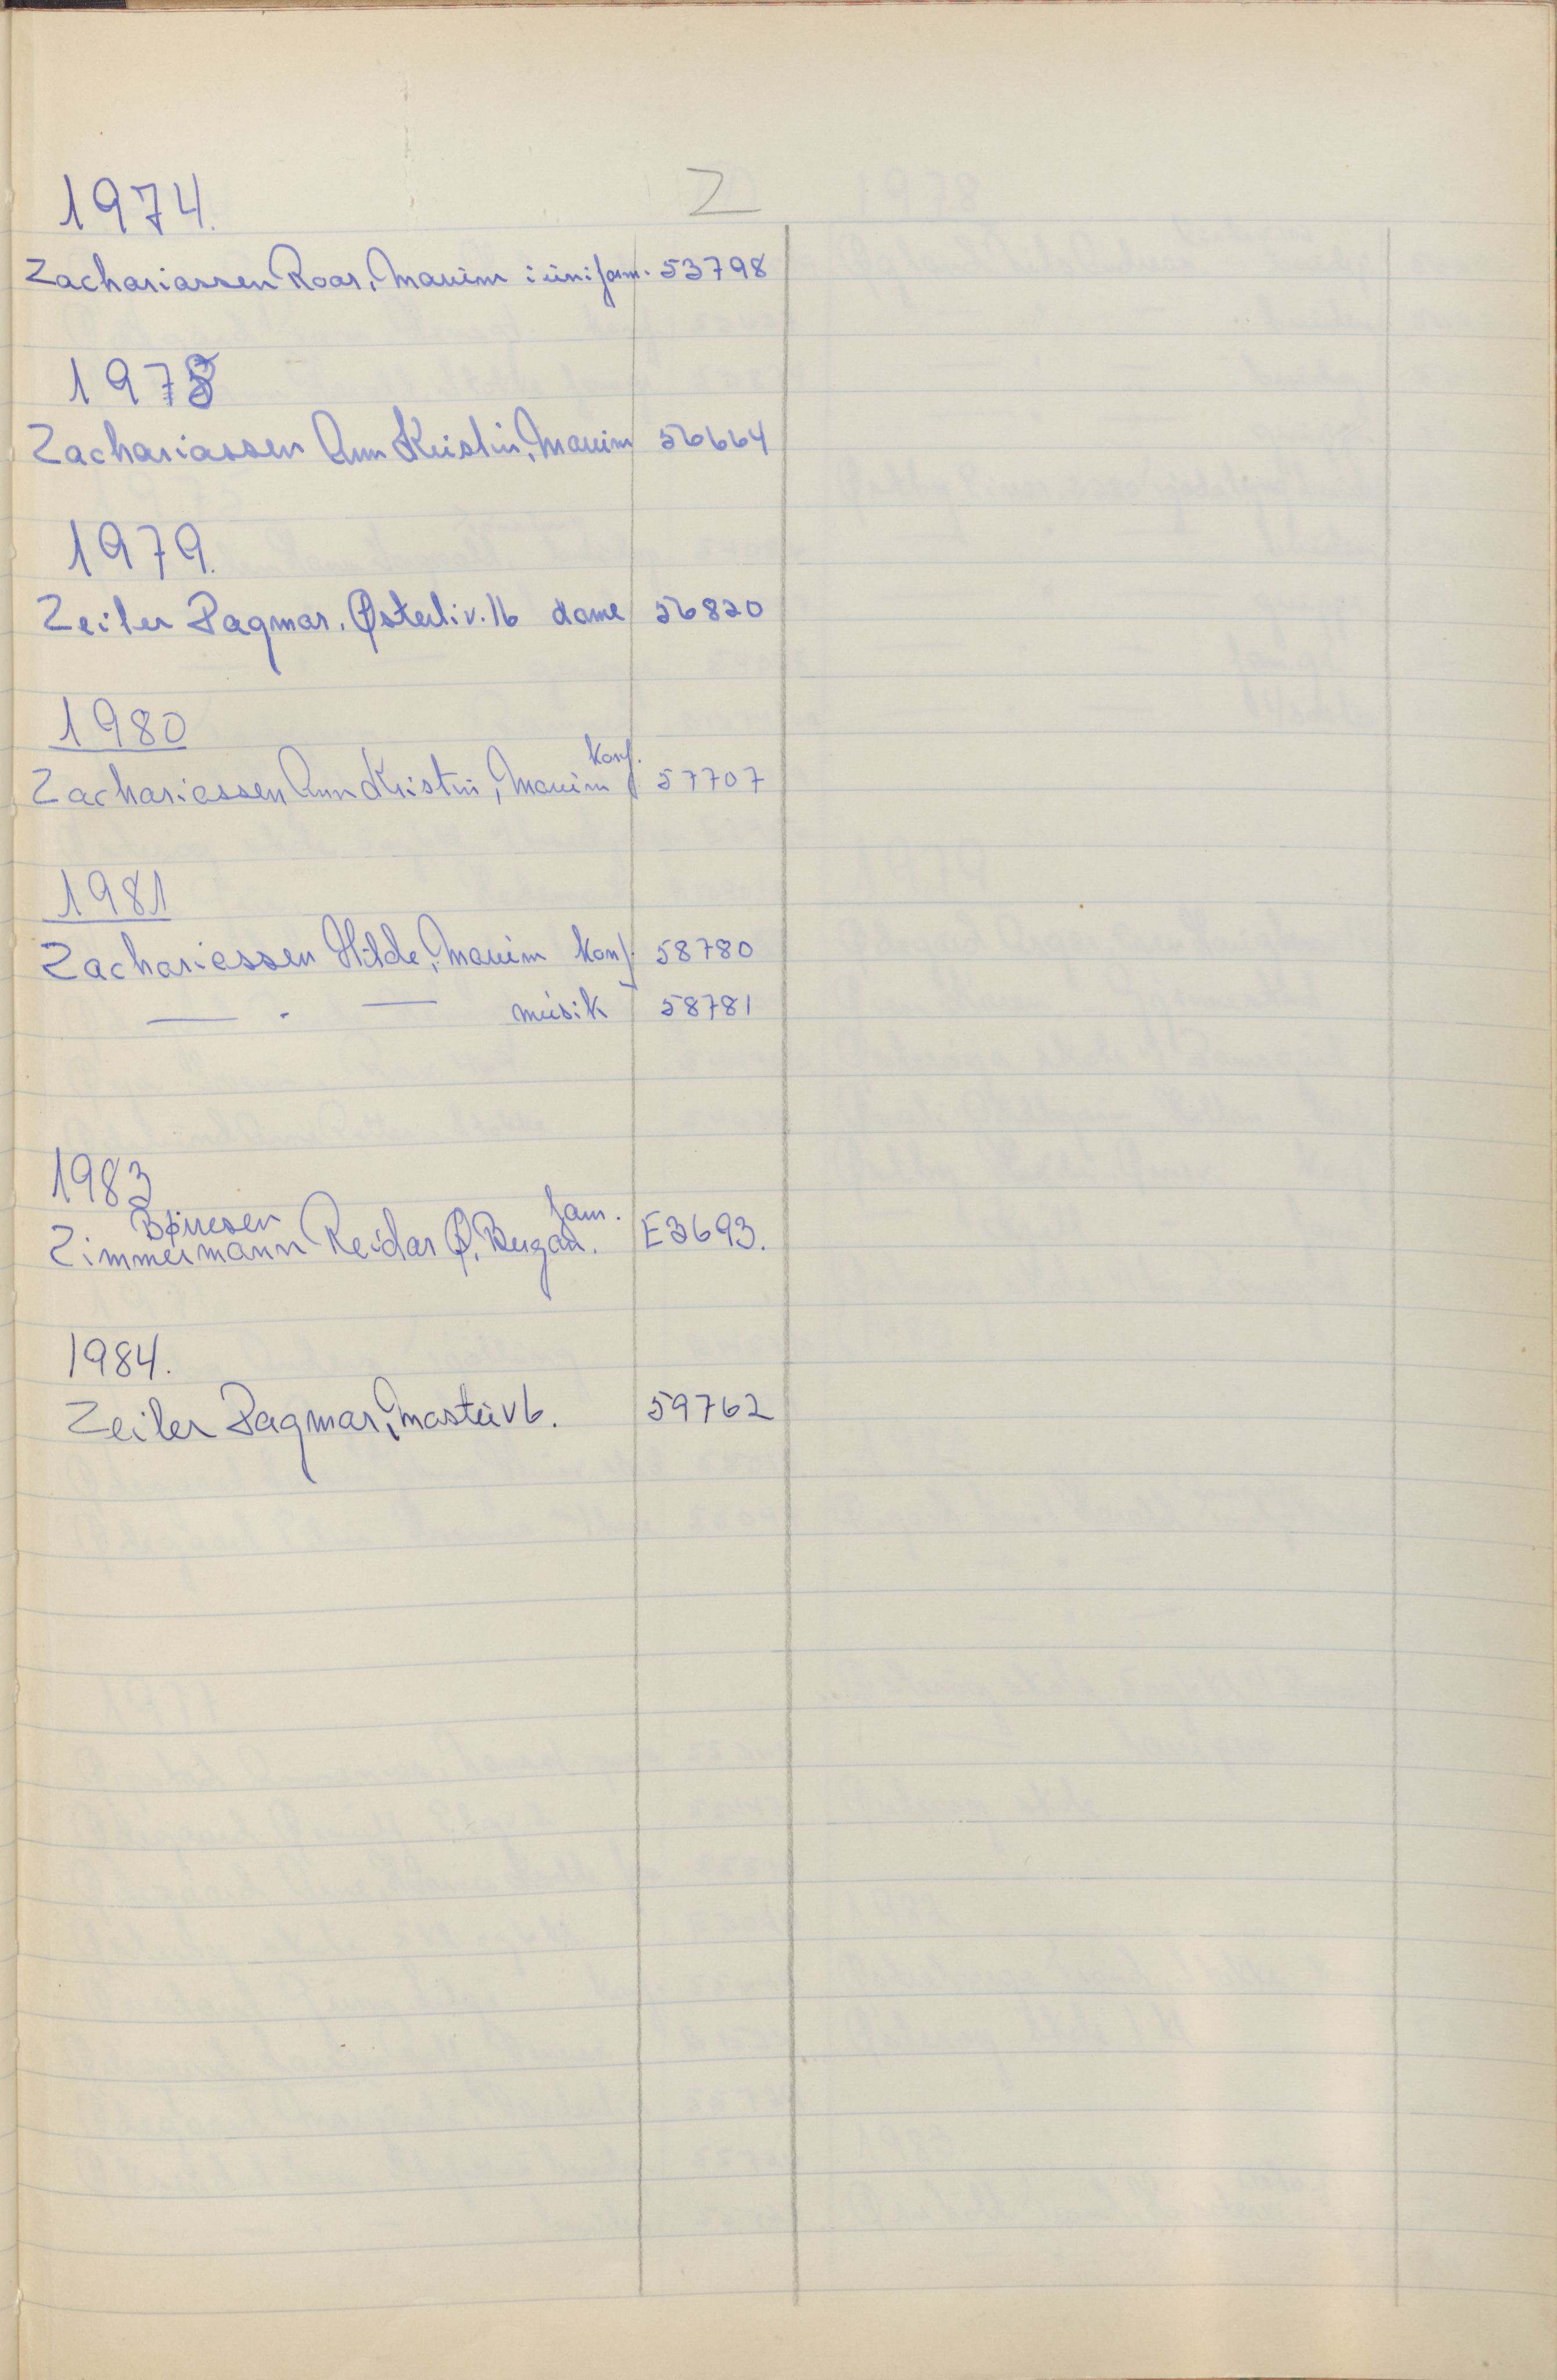 Z
1974.
Zachariassen Roar, Mauim i uniform. 53798
1978
Zachariassen Ann Kristin, Mauim 56664
1979.
Zeiler Dagmar, Østerliv. 16 dame 56820
1980
Zachariassen Ann Kristin, Mauim konf. 57707
1981
Zachariassen Hilde, Mauim konf. 58780
— . — musik 58781
1983
Børresen
Zimmermann Reidar Ø. fam. E3693.
1984.
Zeiler Dagmar, 59762